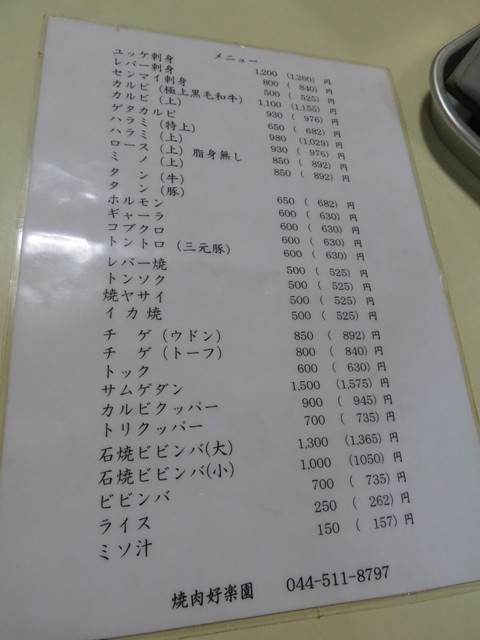 メニュー
ユッケ刺身 1,200 (1,260) 円
レバー刺身 800 ( 840) 円
センマイ刺身 500 ( 525) 円
カルビ (極上黒毛和牛) 1,100 (1,155) 円
カルビ (上) 930 ( 976) 円
ゲタカルビ 650 ( 682) 円
ハラミ (特上) 980 (1,029) 円
ハラミ (上) 930 ( 976) 円
ロース (上) 脂身無し 850 ( 892) 円
ミ ノ (上) 850 ( 892) 円
タ ン (牛)
タ ン (豚) 650 ( 682) 円
ホルモン 600 ( 630) 円
ギャーラ 600 ( 630) 円
コブクロ 600 ( 630) 円
トントロ (三元豚) 600 ( 630) 円
レバー焼 500 ( 525) 円
トンソク 500 ( 525) 円
焼ヤサイ 500 ( 525) 円
イ カ 焼 500 ( 525) 円
チ ゲ (ウドン) 850 ( 892) 円
チ ゲ (トーフ) 800 ( 840) 円
トック 600 ( 630) 円
サムゲダン 1,500 (1,575) 円
カルビクッパー 900 ( 945) 円
トリクッパー 700 ( 735) 円
石焼ビビンバ(大) 1,300 (1,365) 円
石焼ビビンバ(小) 1,000 (1050) 円
ビビンバ 700 ( 735) 円
ライス 250 ( 262) 円
ミソ汁 150 ( 157) 円
焼肉好楽園 044-511-8797